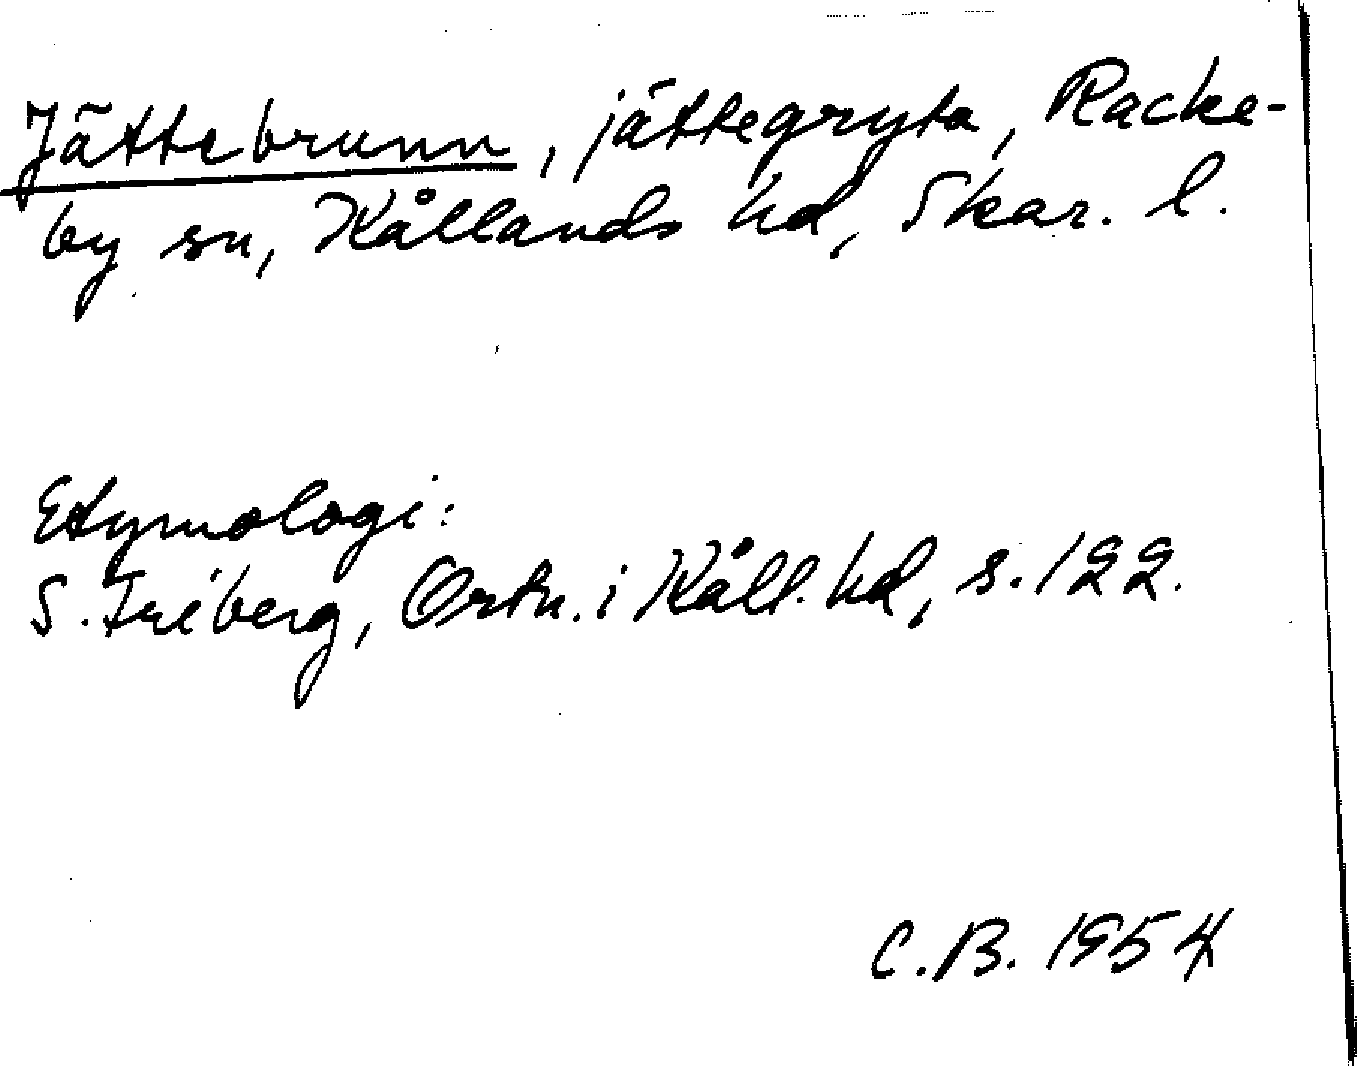 Jättebrunn, jättegryta, Racke-
by sn, Kållands hd, Skar. l.
Etymologi:
S. Friberg, Ortn. i Kåll. hd, s. 122.
C.B. 1954